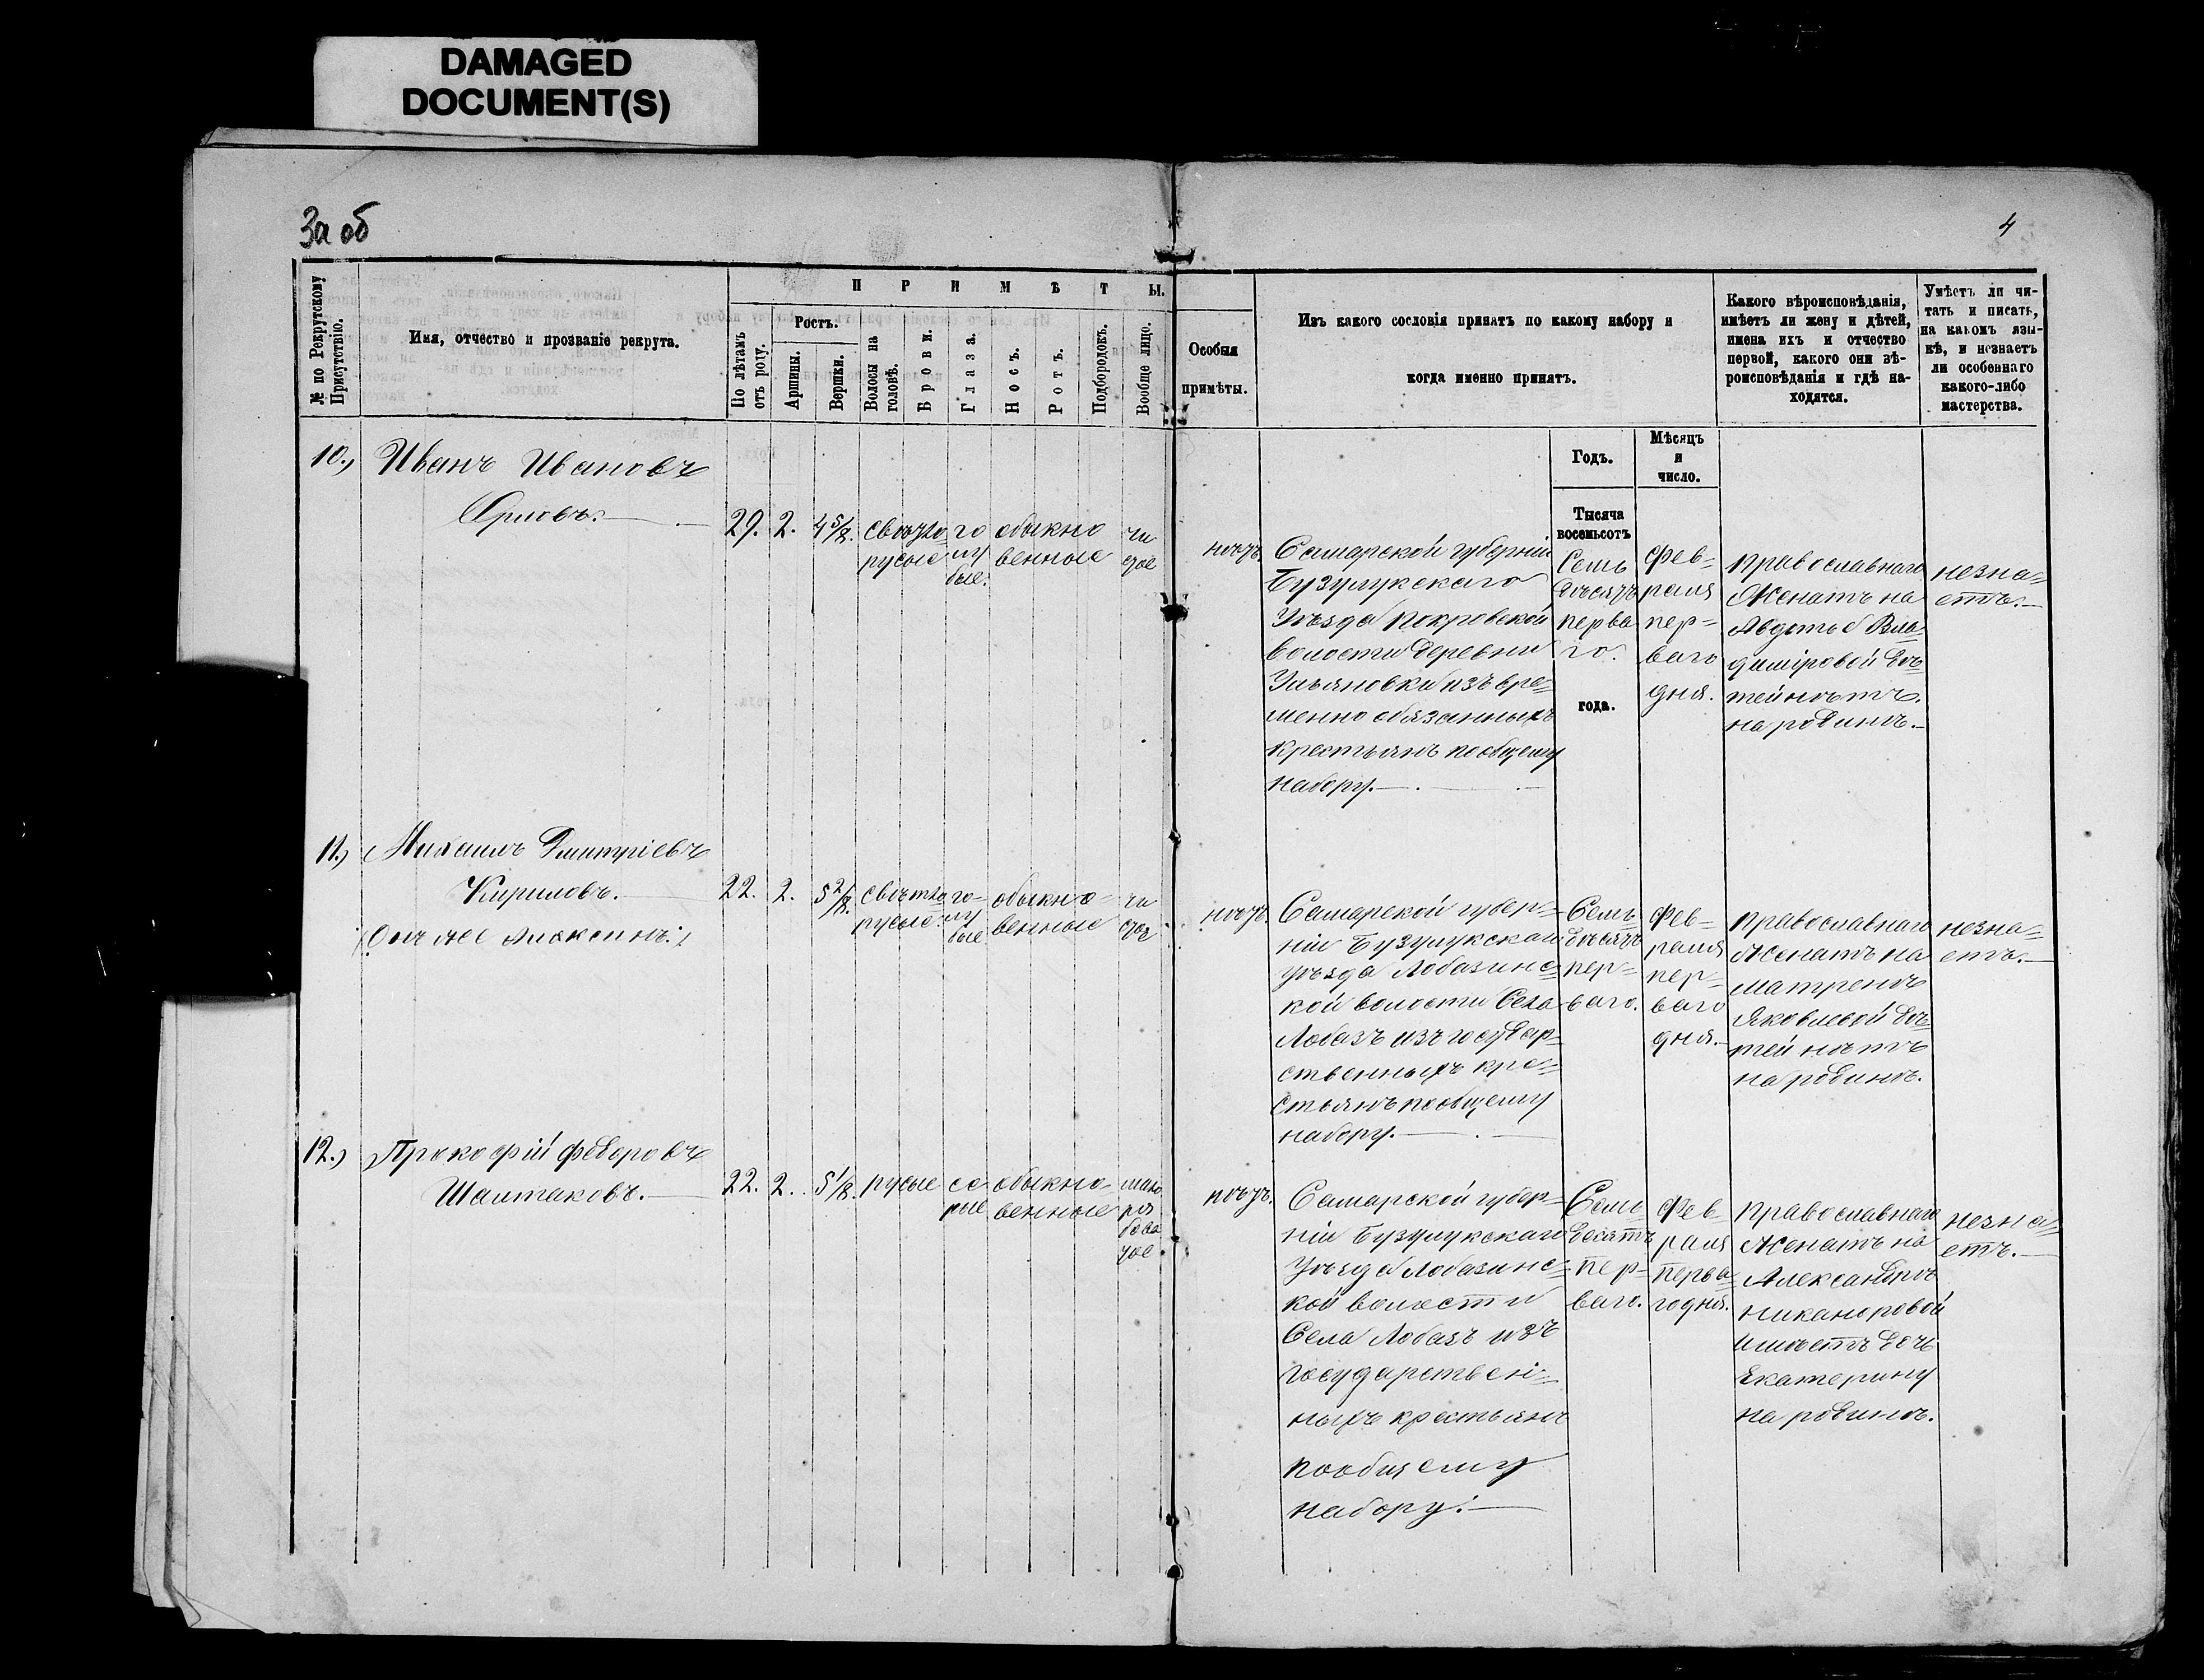 DAMAGED
DOCUMENT(S)
3а об
4
№ по Рекрутскому
Присутствію.
Имя, отчество и прозваніе рекрута.
П Р И М Ѣ Т Ы.
По лѣтамъ
отъ роду.
Ростъ.
Аршины.
Вершки.
Волосы на
головѣ.
Брови.
Глаза.
Носъ.
Ротъ.
Подбородокъ.
Вообще лицо.
Особыя
примѣты.
Изъ какого сословія принятъ по какому набору и
когда именно принятъ.
Какого вѣроисповѣданія,
имѣетъ ли жену и дѣтей,
имена ихъ и отчество
первой, какого они вѣ-
роисповѣданія и гдѣ на-
ходятся.
Умѣетъ ли чи-
тать и писать,
на какомъ язы-
кѣ, и незнаетъ
ли особеннаго
какого-либо
мастерства.
Годъ.
Мѣсяцъ
и
число.
Тысяча
восемьсотъ
года.
10.) Иванъ Ивановъ
Орловъ.
29. 2. 4 5/8.
свѣтло
русые
го
лу
бые.
обыкно
венные
чи
стое
нѣтъ.
Самарской губерніи
Бузулукскаго
Уѣзда Покровской
волости деревни
Ульяновки изъ вре=
менно обязанныхъ
крестьянъ по общему
набору.
Семь
десятъ
перва
го.
Фев-
раля
пер=
ваго
дня.
православнаго
Женатъ на
Авдотьѣ Вла
диміровой дѣ
тей нѣтъ.
на родинѣ.
незна=
етъ.
11.) Михаилъ Дмитріевъ
Кириловъ.
(Онъ же Алаксинъ:)
22. 2. 5 2/8.
свѣтло
русые.
го-
лу
бые
обыкно-
венные
чи
стое
нѣтъ.
Самарской губер=
ніи Бузулукскаго
уѣзда Лобазинс=
кой волости Села
Лобазъ изъ государ=
ственныхъ кре=
стьянъ по общему
набору.
Семь
десятъ
пер=
ваго.
Фев=
раля
пер=
ваго
дня.
православнаго
Женатъ на
Матренѣ
Яковлевой дѣ
тей нѣтъ
на родинѣ.
незна=
етъ.
12.) Прокофій Федоровъ
Шалтаковъ.
22. 2. 5 1/8.
русые
се
рые
обыкно=
венные
мало
ря
бова
тое.
нѣтъ.
Самарской губер=
ніи Бузулукскаго
Уѣзда Лобазинс=
кой волости
Села Лобазъ изъ
государствен=
ныхъ крестьянъ
по общему
набору.
Семь
десятъ
пер=
ваго.
Фев=
раля
перва=
го дня.
православнаго
Женатъ на
Александрѣ
Никаноровой
имѣетъ дочь
Екатерину
на родинѣ.
незна=
етъ.